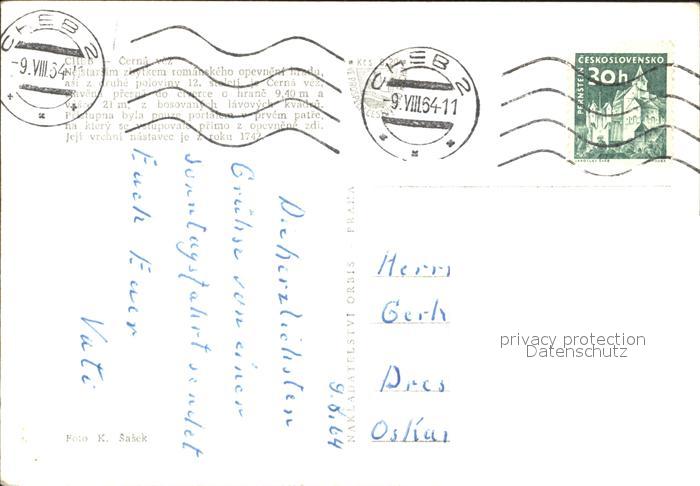 CHEB – Černá věž
Nejstarším zbytkem románského opevnění hradu,
asi z druhé poloviny 12. století, je Černá věž,
čtvercového o hraně 9,40 m a
21 m, z bosovaných lávových kvádrů.
Přístupna byla pouze portálem v prvém patře,
na který se vstupovalo přímo z opevněné zdi.
Její vrchní nástavec je z roku 1742.
CHEB 2
-9.VIII.64-
CHEB 2
-9.VIII.64-11
ČESKOSLOVENSKO
30h
PERNŠTEJN
9.8.64
Die herzlichsten
Grühse von einer
Sonntagsfahrt sendet
Euch Euer
Vati
Foto K. Šašek
NAKLADATELSTVÍ ORBIS – PRAHA
Herrn
Gerh
Dres
Oskar
privacy protection
Datenschutz